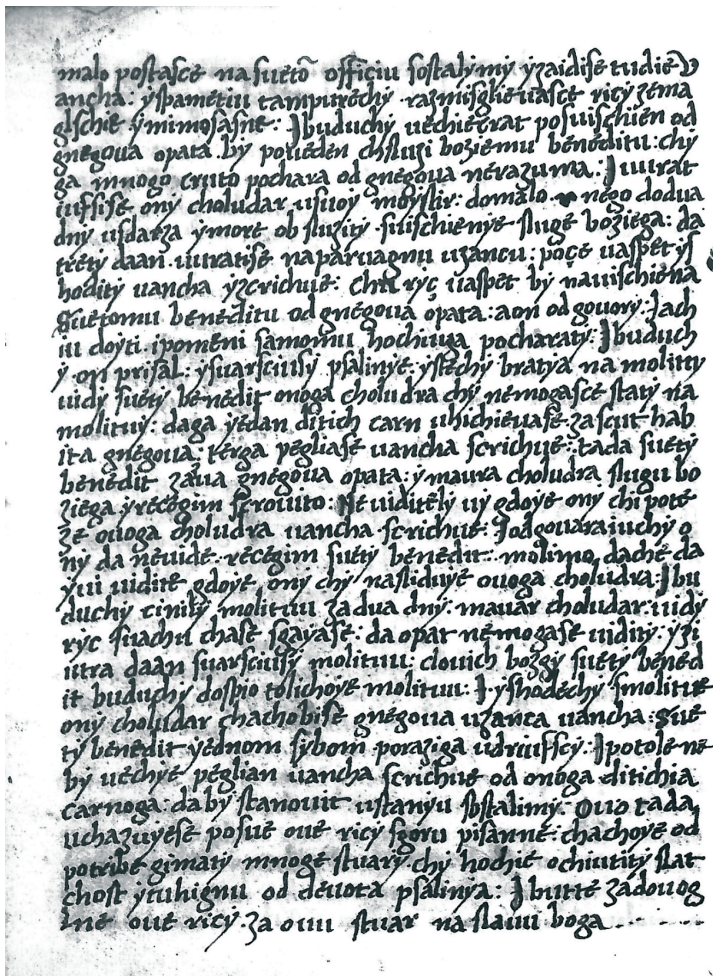 malo postasce na suetō officiu sostalymy yzaidise tudie v
ancha. yspametiu tampurechy razmisglievasce ricy zema
glschie ymimosasne: Ibuduchy vechiecrat posuischien od
gnegoua opata. by poueden chslugi boziemu beneditu: chy
ga mnogo cruto pochara od gnegoua nerazuma: I uurat
iuffise ony choludar usuoy moystir: domalo nego dodua
dny usdarza ymore obsluzity suischienye sluge boziega: da
trety daan uuratise naparuagnu uzancu: poçe uaspet ys
hodity uancha yzcrichue: Chu ryç uaspet by nauischiena
Suetomu beneditu od gnegoua opata: aon odgouory: Iach
iu doyti ipomeni samomu hochiuga pocharaty: Ibuduch
y on prisal: ysuarsciusy psalinye: ystechy bratya na molituy
uidy suety benedit onoga choludra chy nemogasce staty na
molituy: daga yedan ditich carn uhichieuase zascut hab
ita gnegoua: terga pegliase uancha scrichue: tada suety
benedit zaua gnegoua opata: ymaura choludra slugu bo
ziega yrecegim scrouito: Ne uiditely uy gdoye ony chi pote
ze ouoga choludra uancha scrichue: Iodgouaraiuchy o
ny da neuide. recegim suety benedit: molimo dache da
yui uidite gdoye ony chy nasliduye ouoga choludra: Ibu
duchy cinily molituu zadua dny: mauar choludar uidy
ryç suachu chase sgayase: da opat nemogase uidity: yzi
utra daan suarsciusy molituu: clouich bozgy suety bened
it buduchy dospio tolichoye molituu: I yshodechy smolitue
ony choludar chachobise gnegoua uzanca uancha: Sue
ty benedit yednom sybom poraziga udriuffcy: Ipotole ne
by uechye peglian uancha scrichue od onoga ditichia
carnoga: daby stanouit ustanyu sostalimy. Ouo tada
uchazuyese posue oue ricy sgoru pisanne: chachoye od
potribe gimaty mnoge stuary. chy hochie ochiutity slat
chost ytuhignu od deuota psalinya: Ibutte zadouog
lne oue ricy. za ouu stuar na slauu boga